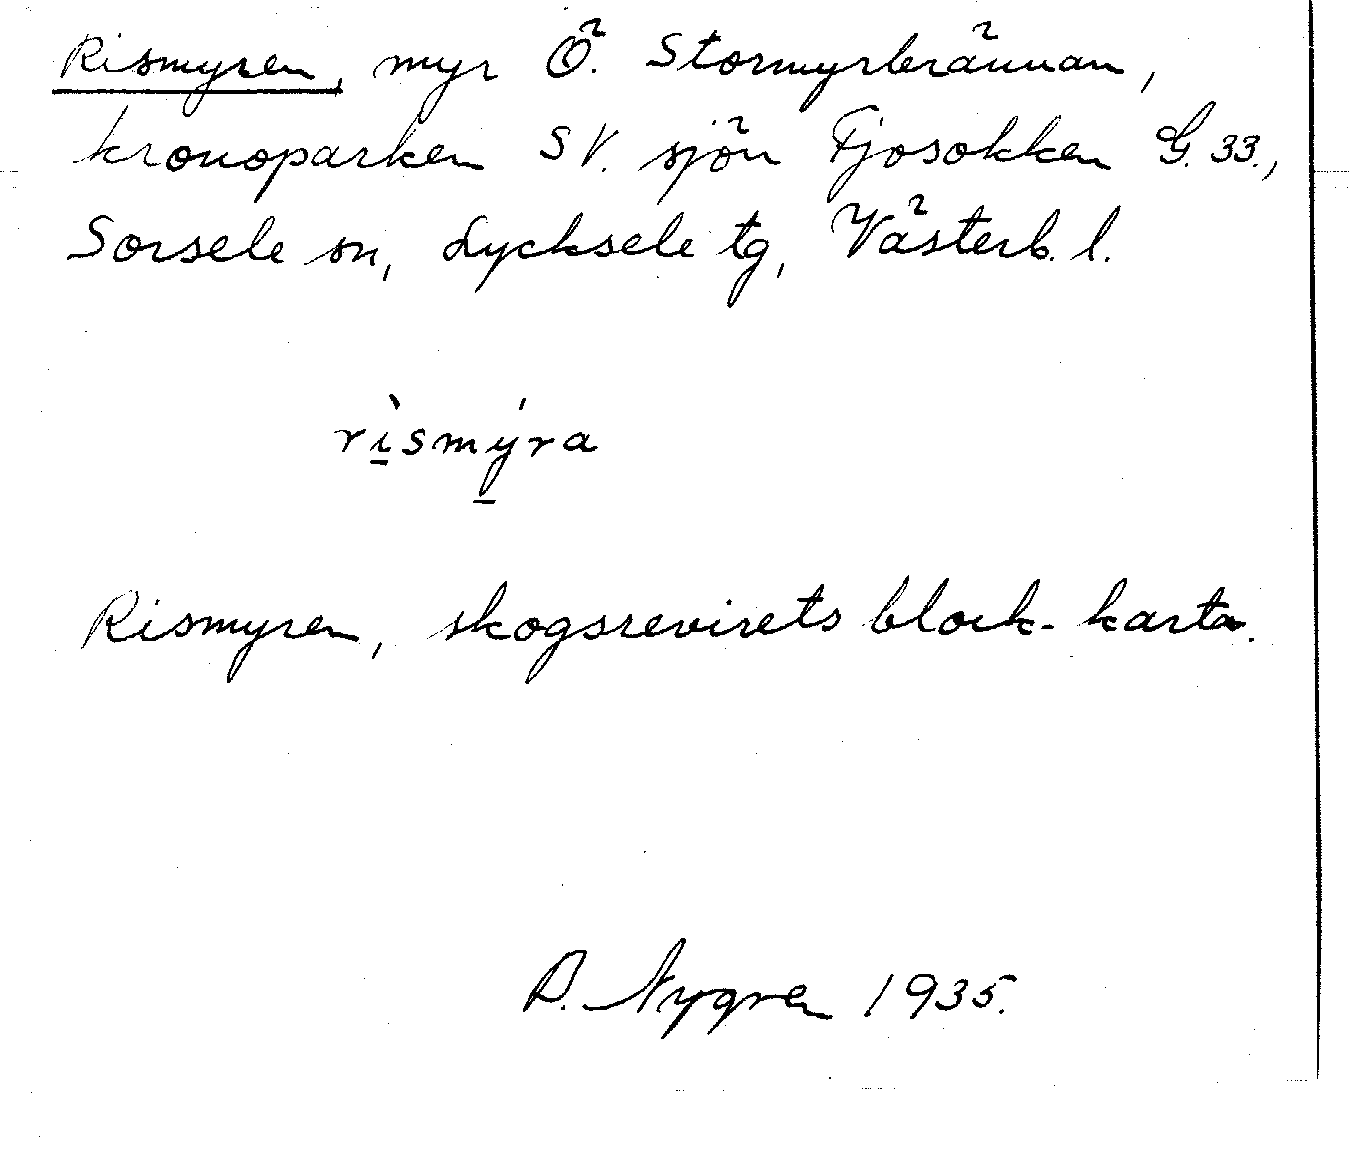 Rismyren, myr Ö. Stormyrbrännan,
kronoparken SV. sjön Fjosokken G. 33.,
Sorsele sn, Lycksele tg, Västerb. l.
rìsmýra
Rismyren, skogsrevirets block-karta.
Nygren 1935.